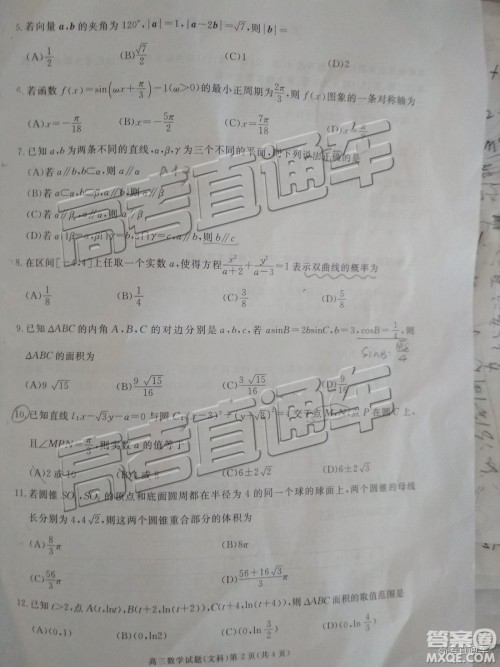 5.若向量a,b的夹角为120°,|a|=1,|a-2b|=√7,则|b|=
(A)1/2 (B)√7/2 (C)1 (D)2
6.若函数f(x)=sin(ωx+π/3)-1(ω>0)的最小正周期为2π/3,则f(x)图象的一条对称轴为
(A)x=-π/18 (B)x=-5π/2 (C)x=7π/18 (D)x=
7.已知a,b为两条不同的直线,α,β,γ为三个不同的平面,则下列说法正确的是
(A)若a∥b,b⊂α,则a∥α
(B)若a⊂α,b⊂β,a∥b,则α∥β
(C)若α∥β,a∥α,则a∥β
(D)若 则b∥c
8.在区间[-4,4]上任取一个实数a,使得方程x²/(a+2)+y²/(a-3)=1表示双曲线的概率为
(A)1/8 (B)1/4 (C)3/8 (D)5/8
9.已知△ABC的内角A,B,C的对边分别是a,b,c,若asinB=2bsinC,b=3,cosB=1/4,则
sinB= √15/4
△ABC的面积为
(A)9√15 (B)9√15/2 (C)3√15/16 (D)9/16
10.已知直线l:x-√3y-a=0与圆C:(x-3)²+(y+√3)² 交于点M,N,点P在圆C上,
且∠MPN=π/3,则实数a的值等于
(A)2或10 (B) 或8 (C)6±2√2 (D)6±2√3
11.若圆锥SO₁,SO₂的顶点和底面圆周都在半径为4的同一个球的球面上,两个圆锥的母线
长分别为4,4√2,则这两个圆锥重合部分的体积为
(A)8/3π (B)8π
(C)56/3π (D)(56+16√3)/3π
12.已知t>2,点A(t,lnt),B(t+2,ln(t+2)),C(t+4,ln(t+4)),则△ABC面积的取值范围是
(A)(0,1) (B)(0,2) (C)(0,ln4/3) (D)(0,ln3/2)
高三数学试题(文科)第2页(共4页)
高考直通车
高考直通车
高考直通车
答案圈
MXQE.COM